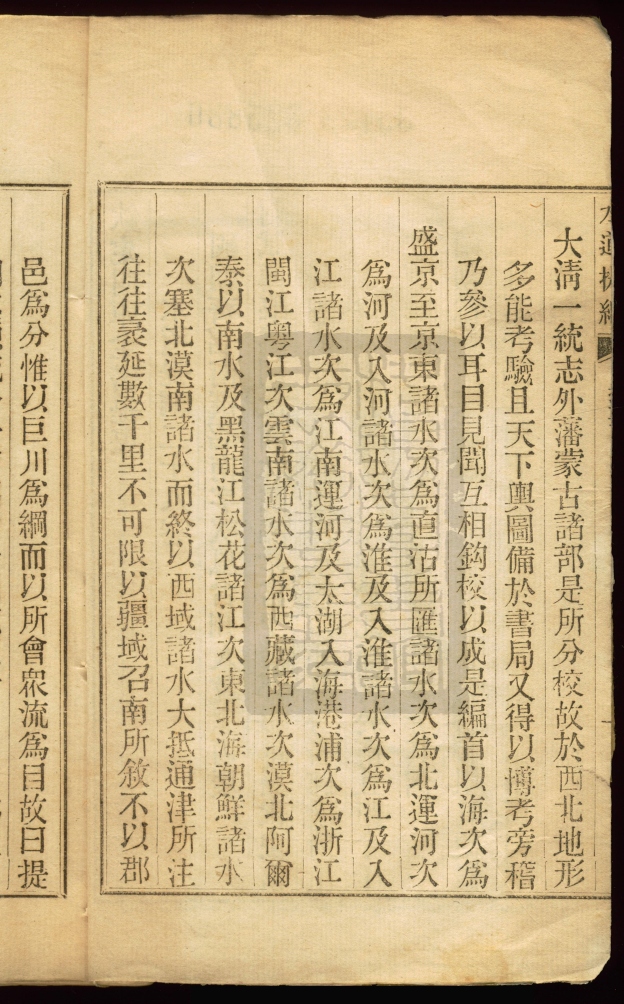 水道提綱
大清一統志外藩蒙古諸部是所分校故於西北地形
多能考驗且天下輿圖備於書局又得以博考旁稽
乃參以耳目見聞互相鉤校以成是編首以海次為
盛京至京東諸水次為直沽所匯諸水次為北運河次
為河及入河諸水次為淮及入淮諸水次為江及入
江諸水次為江南運河及太湖入海港浦次為浙江
閩江粵江次雲南諸水次為西藏諸水次漠北阿爾
泰以南水及黑龍江松花諸江次東北海朝鮮諸水
次塞北漠南諸水而終以西域諸水大抵通津所注
往往袤延數千里不可限以疆域召南所敘不以郡
邑為分惟以巨川為綱而以所會眾流為目故曰提